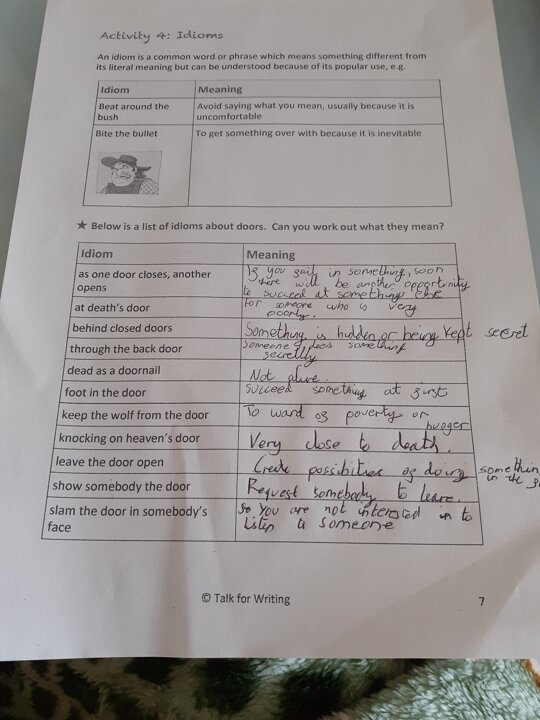 Activity 4: Idioms
An idiom is a common word or phrase which means something different from
its literal meaning but can be understood because of its popular use, e.g.
Idiom Meaning
Beat around the
bush
Avoid saying what you mean, usually because it is
uncomfortable
Bite the bullet To get something over with because it is inevitable
★ Below is a list of idioms about doors. Can you work out what they mean?
Idiom Meaning
as one door closes, another
opens
If you fail in something, soon
there will be another opportunity
to succeed at something else
at death's door
For someone who is very
poorly.
behind closed doors Something is hidden or being kept secret
through the back door
someone does something
secretlly
dead as a doornail Not alive.
foot in the door succeed something at first
keep the wolf from the door To ward of poverty or
hunger
knocking on heaven's door Very close to death.
leave the door open Create possibities of doing somethin
in the
show somebody the door Request somebody to leave.
slam the door in somebody's
face
so You are not interested in to
listen to someone
© Talk for Writing 7